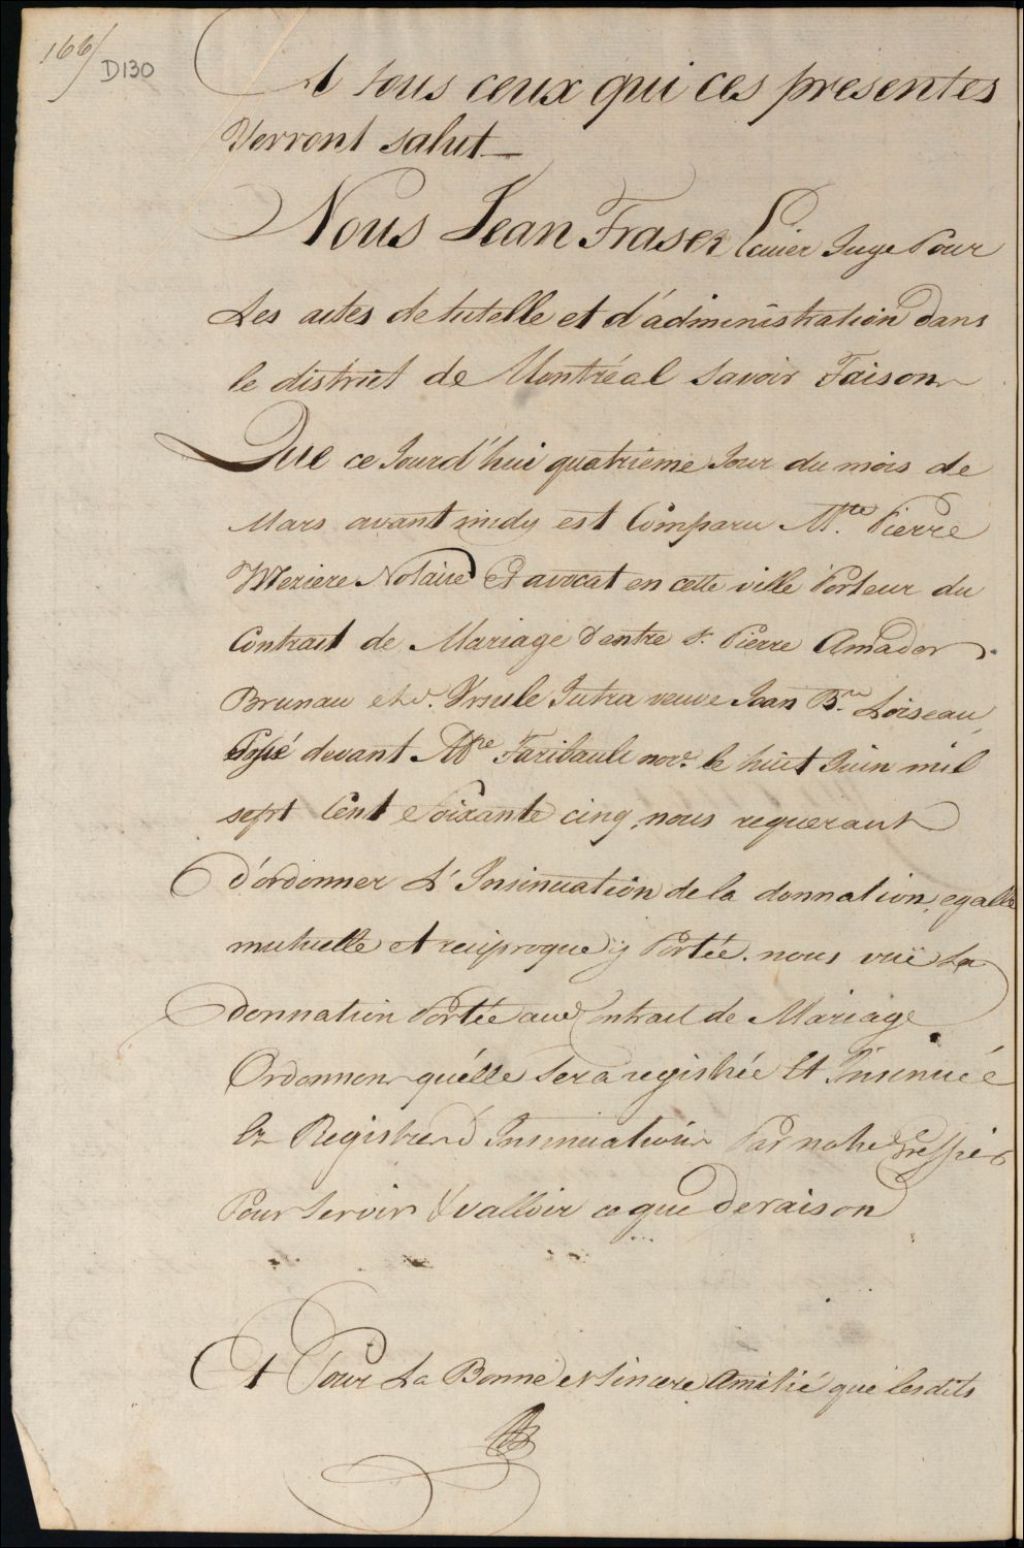 166/
D130
A tous ceux qui ces presentes
Verront salut
Nous Jean Fraser Ecuier Juge Pour
Les actes de tutelle et d'administration dans
le district de Montréal savoir Faisons
Que ce Jourd'hui quatrieme Jour du mois de
Mars avant midy est Comparu Mte. Pierre
Meziere Notaire Et avocat en cette ville Porteur du
Contract de Mariage d'entre Sr. Pierre Amador
Brunau et de. Ursule Jutra veuve Jean Bte. Loiseau
Passé devant Mte Faribault nore. le huit Juin mil
sept Cent Soixante cinq, nous requerant
d'ordonner L'Insinuation de la donnation, egalle
mutuelle et reciproque y Portée. nous vuë La
donnation Portée aud Contract de Mariage
Ordonnons qu'elle sera registrée Et Insinuée
Ez Registres d'Insinuations Par notre Greffier
Pour Servir & valloir ce que de raison
Et Pour La Bonne et Sincere Amitié que lesdits